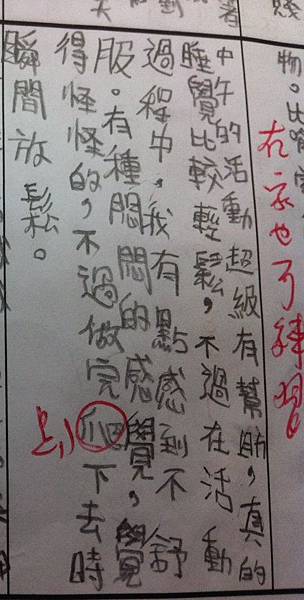 物。
在家也可練習
中午的活動超級有幫助，真的
睡覺比較輕鬆，不過在活動
過程中，我有點感到不舒
服。有種悶悶的感覺，覺
得怪怪的，不過做完爬下去時
瞬間放鬆。